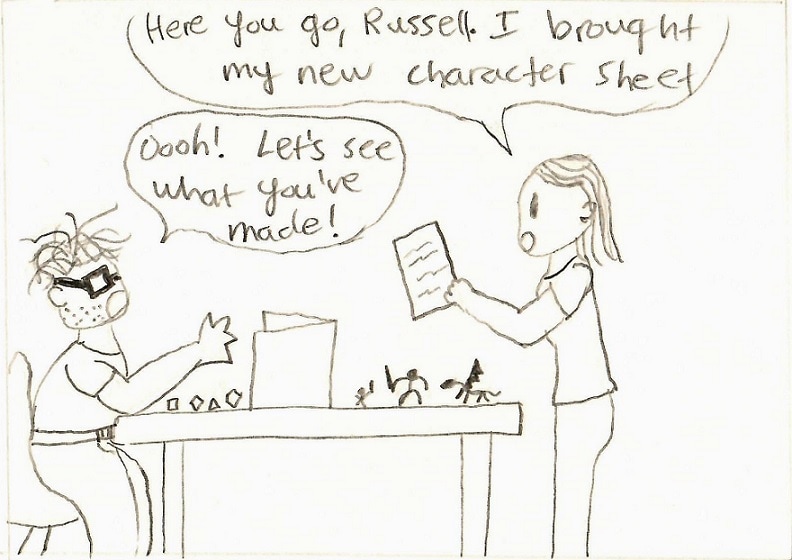 Here you go, Russell. I brought
my new character sheet
Oooh! Let's see
what you've
made!